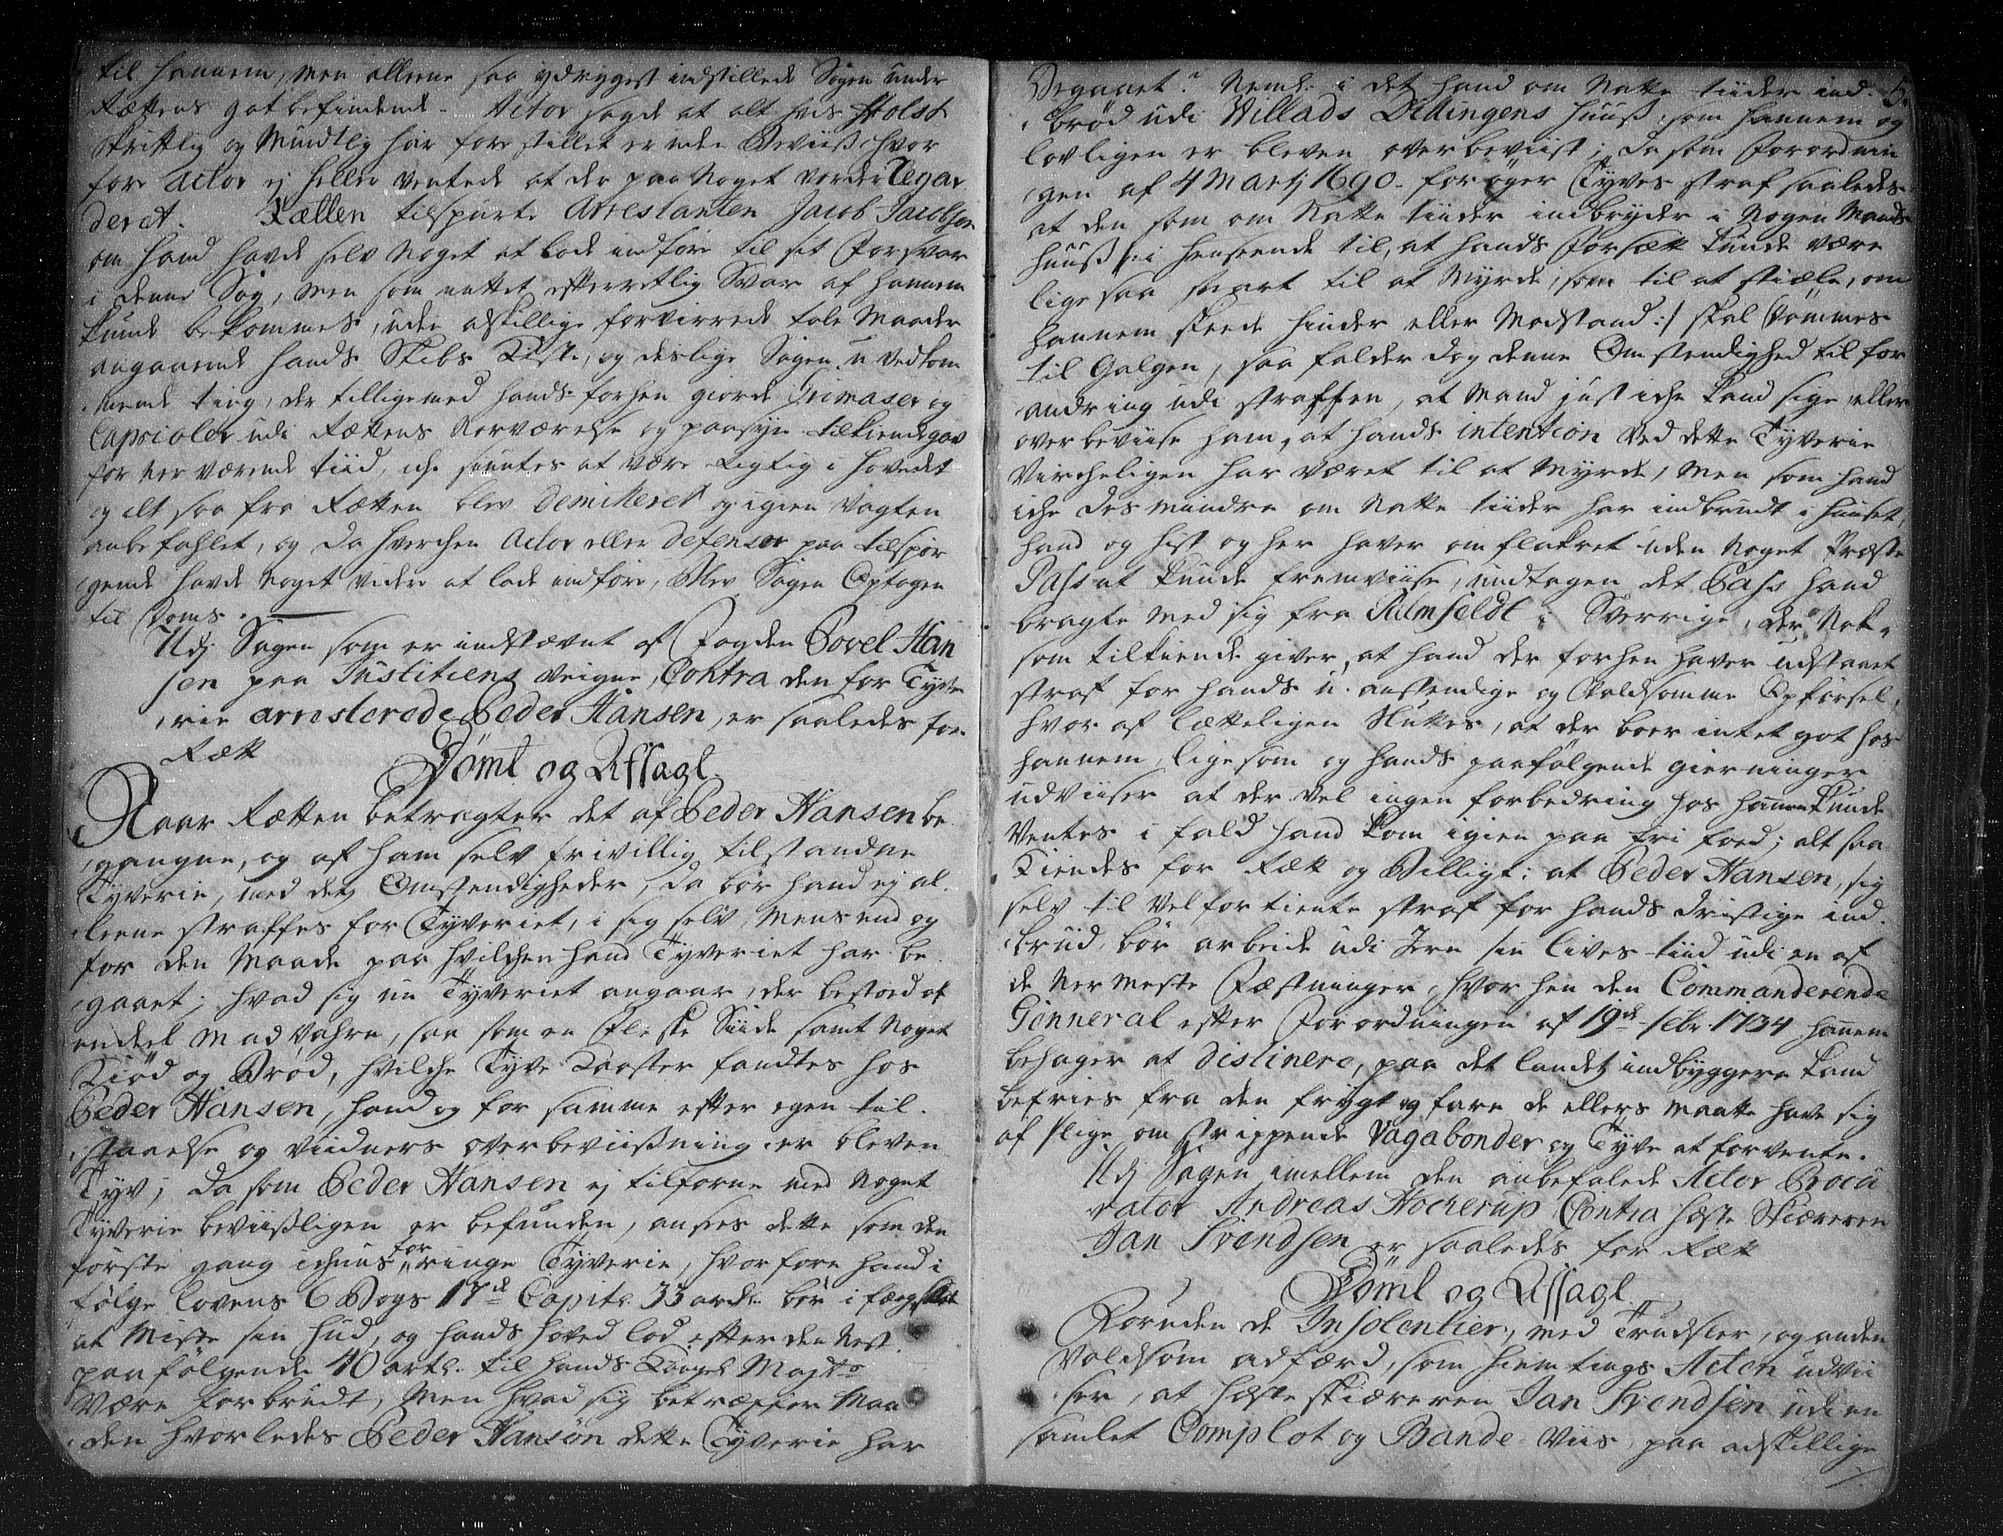 til hannem, men allene saa ydmygest indstillede Sagen under
Rættens gotbefindende. Actor sagde at alt hvis Holst
skriftlig og Mundtlig har forestillet er uden Beviis hvor
fore Actor ej heller ventede at der paa Noget vorder Regar
deret. Rætten tilspurte Arrestanten Jacob Jacobsen
om hand hafde selv Noget at lade indføre til sit Forsvar
i denne Sag, men som intet efterretlig Svar af hannem
kunde bekommes, uden adskillige forvirrede tale Maader
angaaende hands Skibs Kiste, og deslige Sagen uvedkom
mende ting, der tilligemed hands forhen giorde Grimaser og
Caprioler udi Rættens Nerværelse og paasyn tilkiendegav
for nerværende tiid, iche siuntes at være rigtig i hovedet
og alt saa fra Rætten blev demitteret og igien Vagten
anbefahlet, og da hverchen Actor eller Defensor paa tilspør
gende hafde Noget videre at lade indføre, blev Sagen Optagen
til Doms.
Udj Sagen som er indstævnt af Fogden Povel Han
sen paa Justitiens Veigne, Contra den for Tyve
rie arresterede Peder Hansen, er saaledes for
Rætt
Dømt og Afsagt
Naar Rætten betragter det af Peder Hansen be
gangne, og af ham selv frivillig tilstandne
Tyverie, med dets Omstendigheder, da bør hand ej al
leene straffes for Tyveriet, i sig selv, Mens end og
for den Maade paa hvilchen hand Tyveriet har be
gaaet; hvad sig nu Tyveriet angaar, der bestoed af
endeel Mad Vahre, saa som en Fleske Siide samt Noget
Kiød og Brød, hvilche Tyve Koster fandtes hos
Peder Hansen, hand og for samme efter egen til
staaelse og Viidners overbeviisning er bleven
Tyv; Da som Peder Hansen ej tilforne med Noget
Tyverie beviisligen er befunden, ansees dette som den
første gang ichuns for ringe Tyverie, hvorfore hand i
følge Lovens 6 Bogs 17de Capitl. 33 artl. bør i fængslet
at Miste sin Hud, og hands hoved lod efter den Nest
paafølgende 40 artl. til hands Kongel. Majts.
Være forbrudt, Men hvad sig betræffer Maa
den hvorledes Peder Hansøn dette Tyverie har
5.
Begaaet? Neml. i det hand om Natte tiider ind
brød udi Willads huus, som hannem og
lovligen er bleven overbeviist; da som Forordnin
gen af 4 Martj 1690 forøger Tyves straf saaledes
at den som om Natte tiider indbryder i Nogen Mands
huus /: i henseende til, at hands Forsætt kunde være
lige saa snart til at Myrde, som til at stiæle, om
hannem skeede hinder eller Modstand :/ skal Dømmes
til Galgen, saa falder dog denne Omstendighed til for
andring udi straffen, at Mand just iche kand sige, eller
overbeviise ham, at hands intention ved dette Tyverie
Vircheligen har været til at Myrde, Men som hand
iche des mindre om Natte tiider har indbrudt i huuset,
hand og hist og her haver omflakret uden Noget Præste
Pass at kunde fremviise, undtagen det Pass hand
bragte med sig fra i Sverrige, der Nok
som tilkiende giver, at hand der forhen haver udstaaet
straf for hands u-anstendige og Voldsomme Opførsel,
hvor af lætteligen sluttes, at der boer intet got hos
hannem, lige som og hands paafølgende gierninger
udviiser at der vel ingen forbedring hos hannem kunde
Ventes i fald hand kom igien paa fri foed; alt saa
Kiendes for Ræt og Billigt: at Peder Hansen, sig
selv til velfortiente straf for hands dristige ind
brud, bør arbeide udi Jern sin lives tiid udi en af
de Nermeste Fæstninger, hvor hen den Commanderende
Genneral efter Forordningen af 19de febr. 1734 hannem
behager at distinere, paa det landets indbyggere kand
befries fra den frygt og fare de ellers maatte have sig
af slige omstrippende Vagabonder og Tyve at forvente.
Udj Sagen imellem den anbefalede Actor Procu
rator Andreas Hockerup Contra hæste Skiæreren
Jan Svendsen er saaledes for Rætt
Dømt og Afsagt
Foruden de Insolentier, med Trudsler, og anden
Voldsom adfærd, som hiem tings Acten udvii
ser, at hæste skiæreren Jan Svendsen udi en
samlet Complot og Bande Viis, paa adskillige